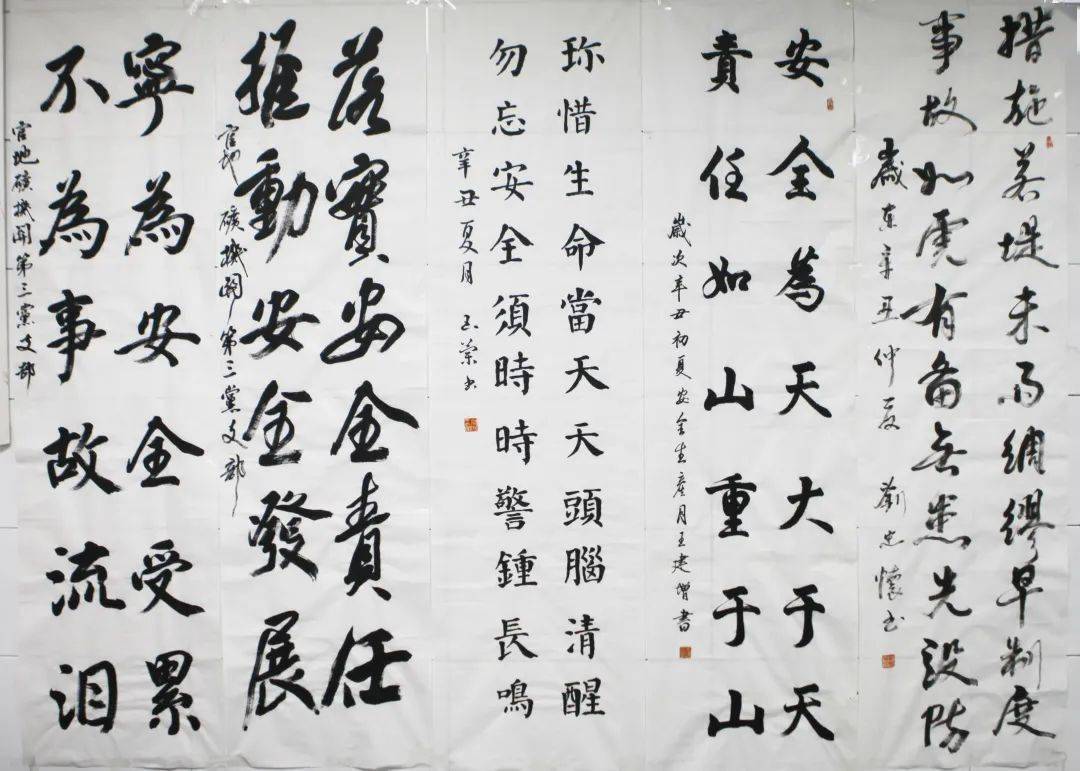 措施若堤未雨綢繆早制度
事故如虎有備無患先設防
歲在辛丑仲夏 劉忠懷书
安全為天大于天
責任如山重于山
歲次辛丑初夏安全生產月王建增書
珎惜生命當天天頭腦清醒
勿忘安全須時時警鍾長鳴
辛丑夏月 玉榮书
落實安全責任
推動安全發展
官地礦機關第三黨支部
寧為安全受累
不為事故流泪
官地礦機關第三黨支部